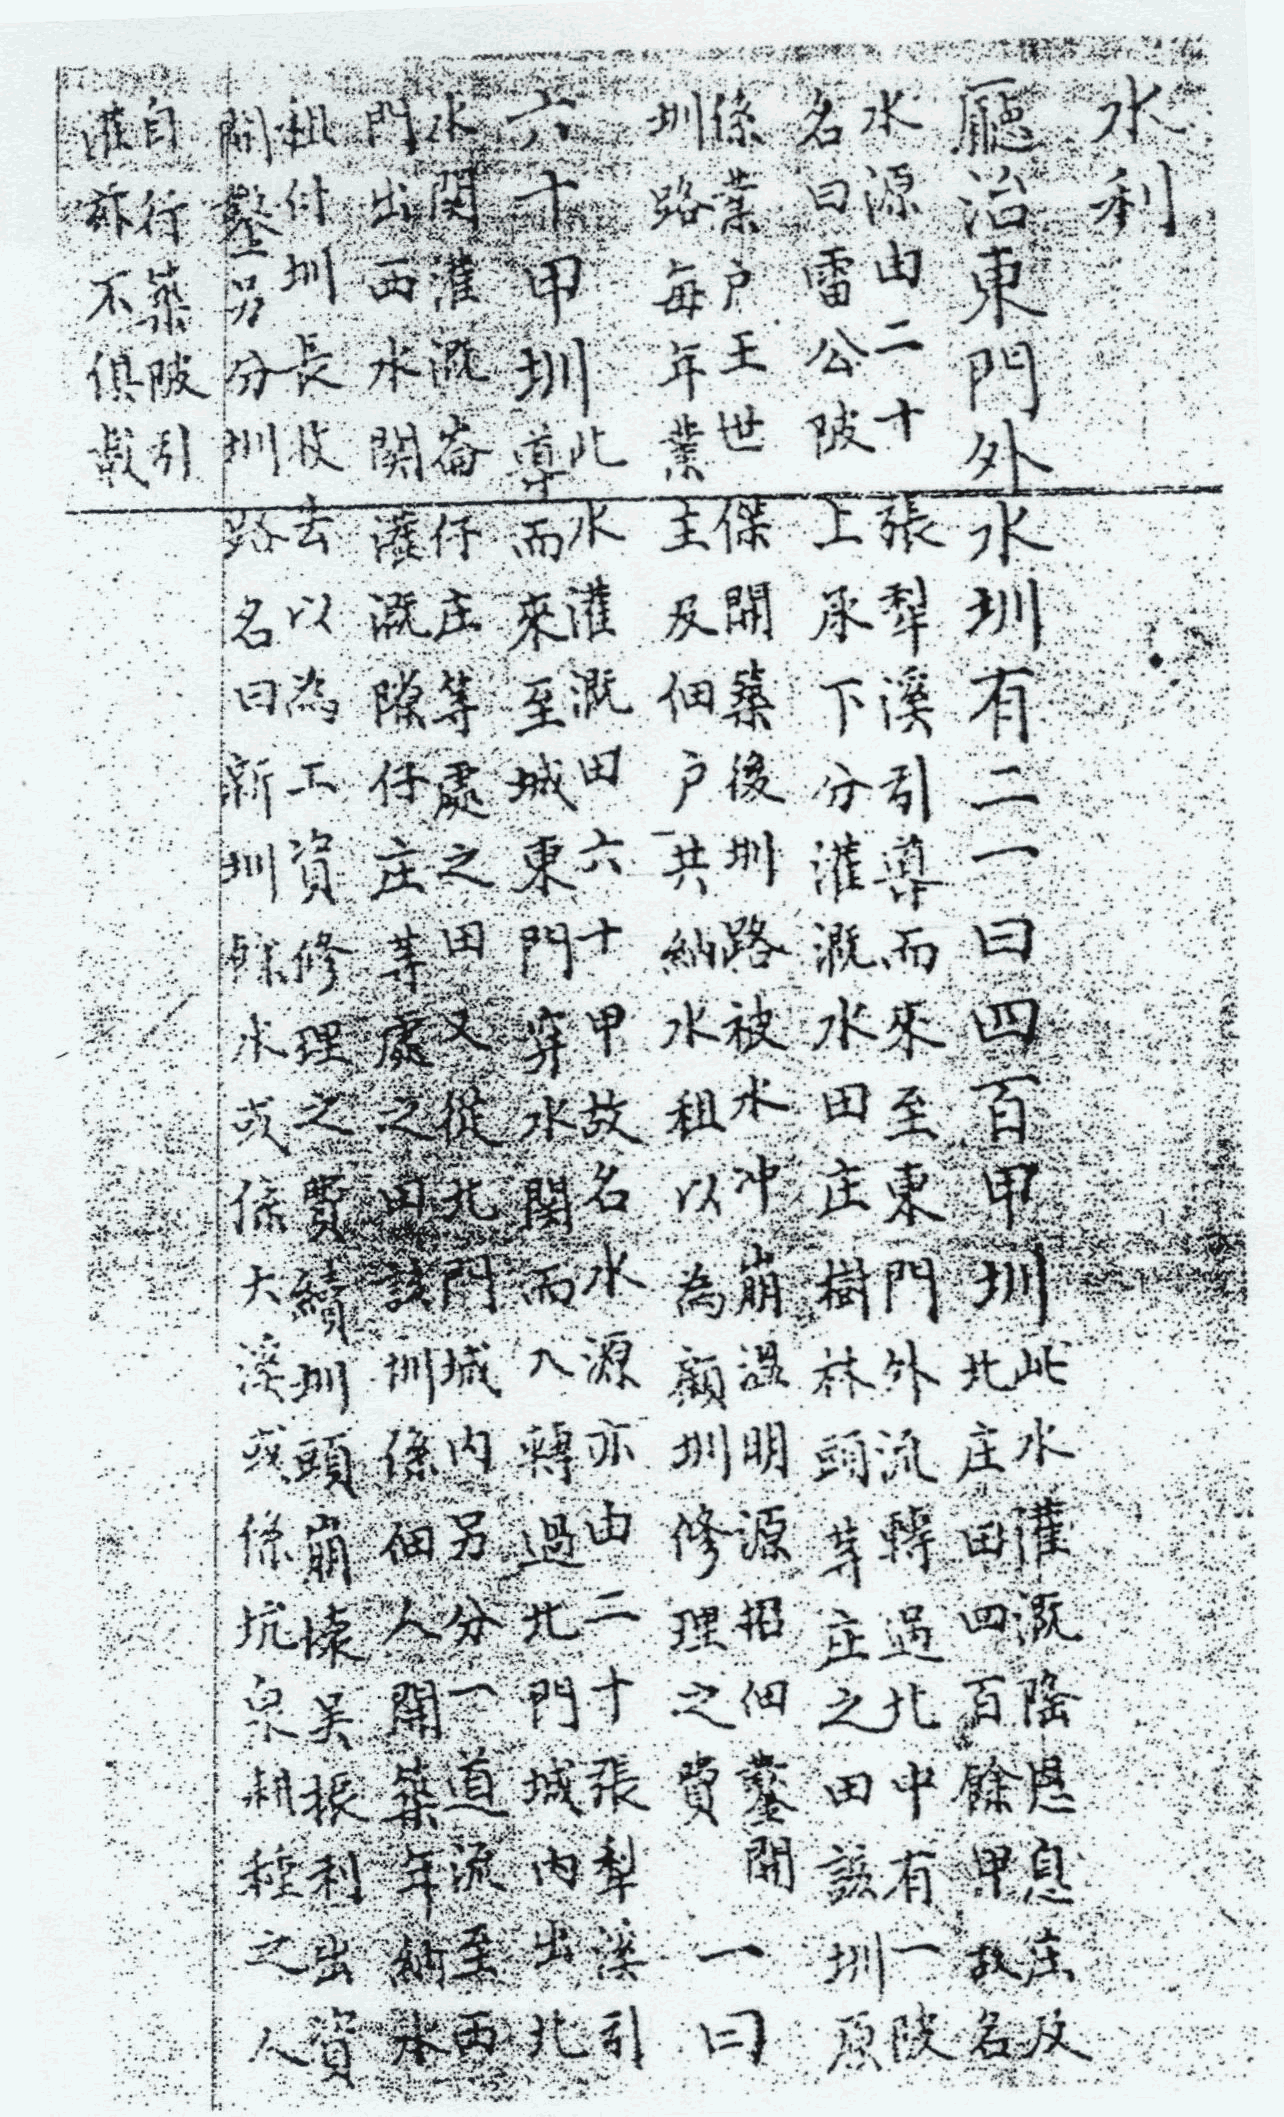 水利
廳治東門外水圳有二一曰四百甲圳
此水灌溉隆恩息庄及
北庄田四百餘甲故名
水源由二十張犁溪引導而來至東門外流轉過北中有一陂
名曰雷公陂上承下分灌溉水田庄樹林頭等庄之田該圳原
係業户王世傑開築後圳路被水冲崩溫明源招佃鑿開
圳路每年業主及佃户共納水租以為顧圳修理之費
一曰
六十甲圳
此水灌溉田六十甲故名水源亦由二十張犁溪引
導而來至城東門穿水関而入轉過北門城内出北
水関灌溉崙仔庄等處之田又從北門城内另分一道流至西
門出西水関灌溉隙仔庄等處之田該圳係佃人開築年納水
租付圳長收去以為工資修理之費續圳頭崩壞吳振利出資
開鑿另分圳路名曰新圳餘水或係大溪或係坑泉耕種之人
自行築陂引
灌亦不俱載